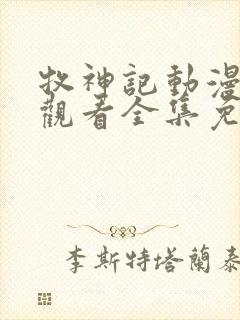 牧神記動漫
觀看全集免
李斯特塔蘭泰